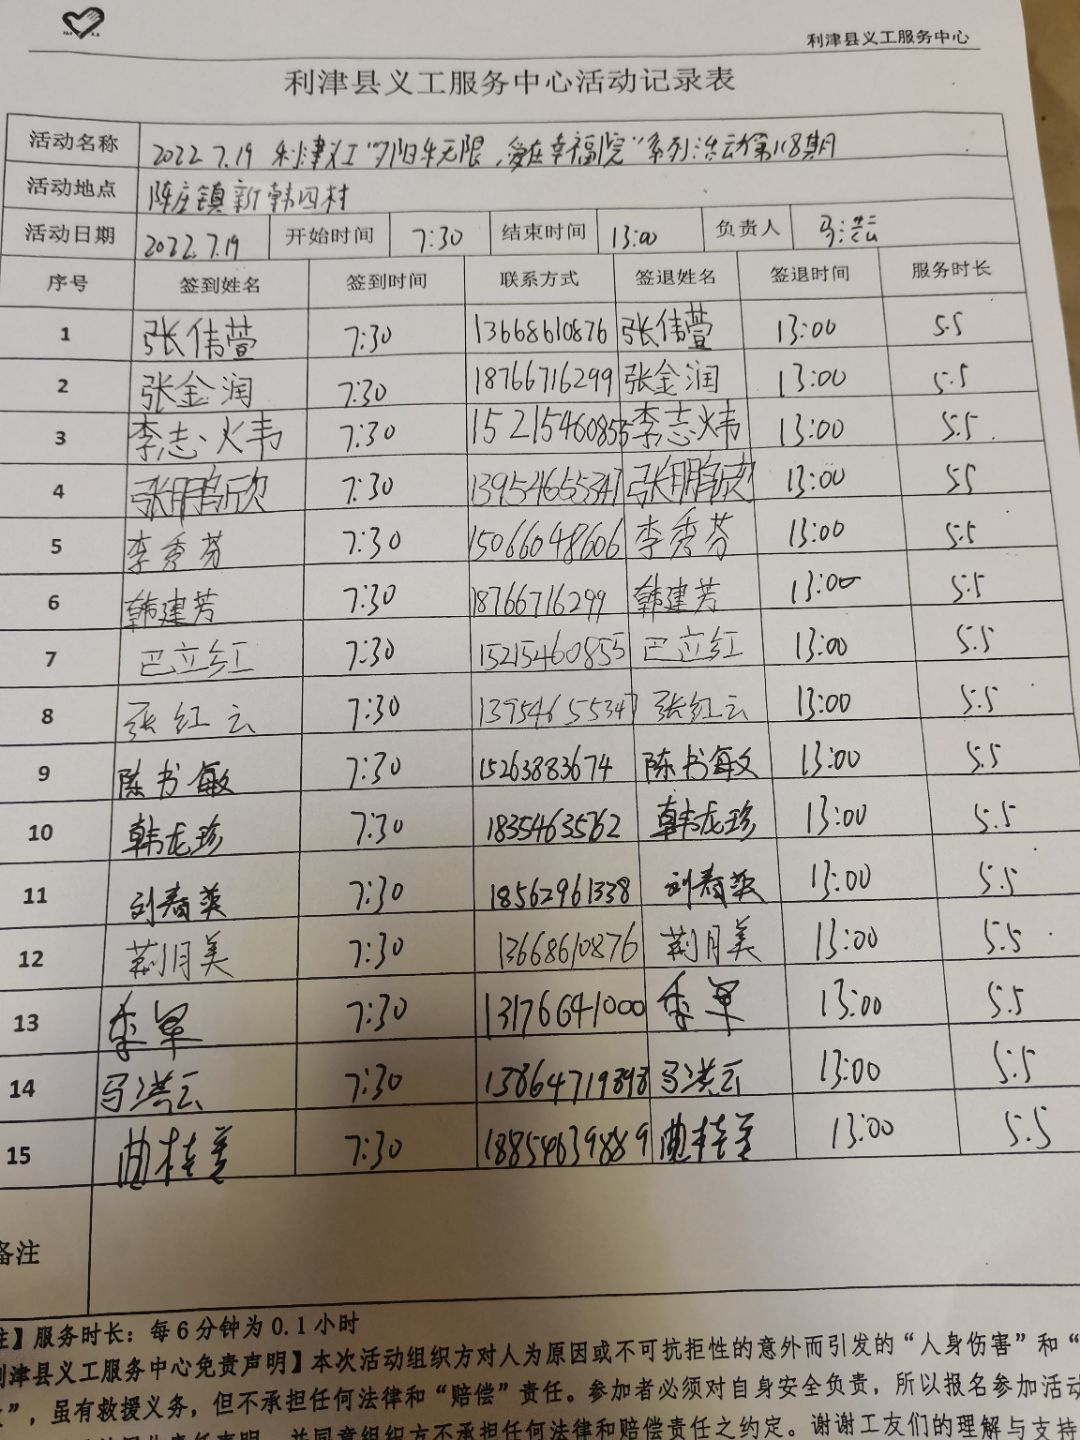 利津县义工服务中心
利津县义工服务中心活动记录表
活动名称 2022.7.19 利津义工“夕阳年无限，爱在幸福院”系列活动第118期
活动地点 陈庄镇新韩四村
活动日期 2022.7.19 开始时间 7:30 结束时间 13:00 负责人 马洪云
序号 签到姓名 签到时间 联系方式 签退姓名 签退时间 服务时长
1 张伟萱 7:30 13668610876 张伟萱 13:00 5.5
2 张金润 7:30 18766716299 张金润 13:00 5.5
3 李志炜 7:30 15215460855 李志炜 13:00 5.5
4 张鹏欣 7:30 13954655347 张鹏欣 13:00 5.5
5 李秀芬 7:30 15066048606 李秀芬 13:00 5.5
6 韩建芳 7:30 18766716299 韩建芳 13:00 5.5
7 巴立红 7:30 15215460855 巴立红 13:00 5.5
8 张红云 7:30 13954655347 张红云 13:00 5.5
9 陈书敏 7:30 15263883674 陈书敏 13:00 5.5
10 韩龙珍 7:30 18354635762 韩龙珍 13:00 5.5
11 刘春英 7:30 18562961338 刘春英 13:00 5.5
12 荆月美 7:30 13668610876 荆月美 13:00 5.5
13 7:30 13176641000 13:00 5.5
14 马洪云 7:30 13864719898 马洪云 13:00 5.5
15 曲桂美 7:30 18854639889 曲桂美 13:00 5.5
备注
注】服务时长：每6分钟为0.1小时
利津县义工服务中心免责声明】本次活动组织方对人为原因或不可抗拒性的意外而引发的“人身伤害”和“
”，虽有救援义务，但不承担任何法律和“赔偿”责任。参加者必须对自身安全负责，所以报名参加活动
责任声明，并同意组织方不承担任何法律和赔偿责任之约定。谢谢工友们的理解与支持